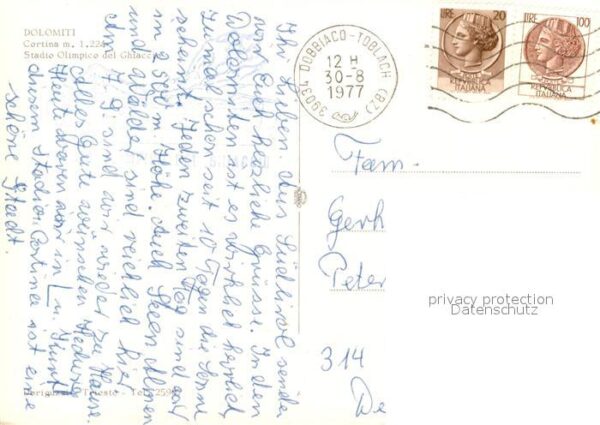 DOLOMITI
Cortina m. 1.224
Stadio Olimpico del Ghiacc
39034 DOBBIACO-TOBLACH (BZ)
12 H
30-8
1977
LIRE 20
REPUBBLICA
ITALIANA
LIRE 100
REPUBBLICA
ITALIANA
Ihr Lieben. Aus Südtirol senden
wir Euch herzliche Grüsse. In den
Dolomiten ist es wirklich herrlich,
zumal schon seit 10 Tagen die Sonne
scheint. Jeden zweiten Tag sind wir
in 2 500 m Höhe. Auch Seen Almen
und Wälder sind reichlich hier.
Am 7.9. sind wir wieder zu Hause.
Alles Gute wünschen
Heute waren wir in
diesem Stadion. Cortina ist eine
schöne Stadt.
Fam.
Gerh
Peter
314
De
privacy protection
Datenschutz
Trieste - Tel.